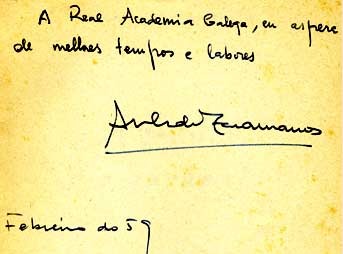 A Real Academia Galega, en aspera
de mellores tempos e labores
Avilés de Taramancos
Febreiro do 59